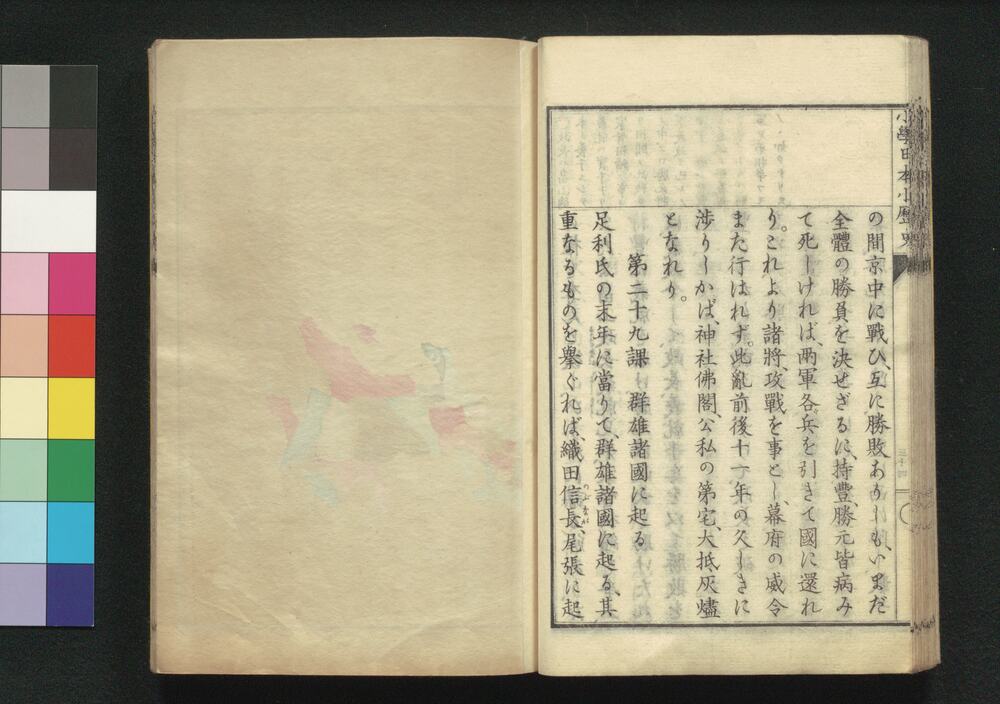 小學日本小歷史
の間京中に戰ひ、互に勝敗ありしも、いまだ
全體の勝負を決せざるに、持豐、勝元皆病み
て死しければ、兩軍各兵を引きて國に還れ
り。これより諸將、攻戰を事とし、幕府の威令
また行はれず。此亂前後十一年の久しきに
渉りしかば、神社佛閣、公私の第宅、大抵灰燼
となれり。
第二十九課 群雄諸國に起る
足利氏の末年に當りて、群雄諸國に起る、其
重なるものを擧ぐれば、織田信長、尾張に起